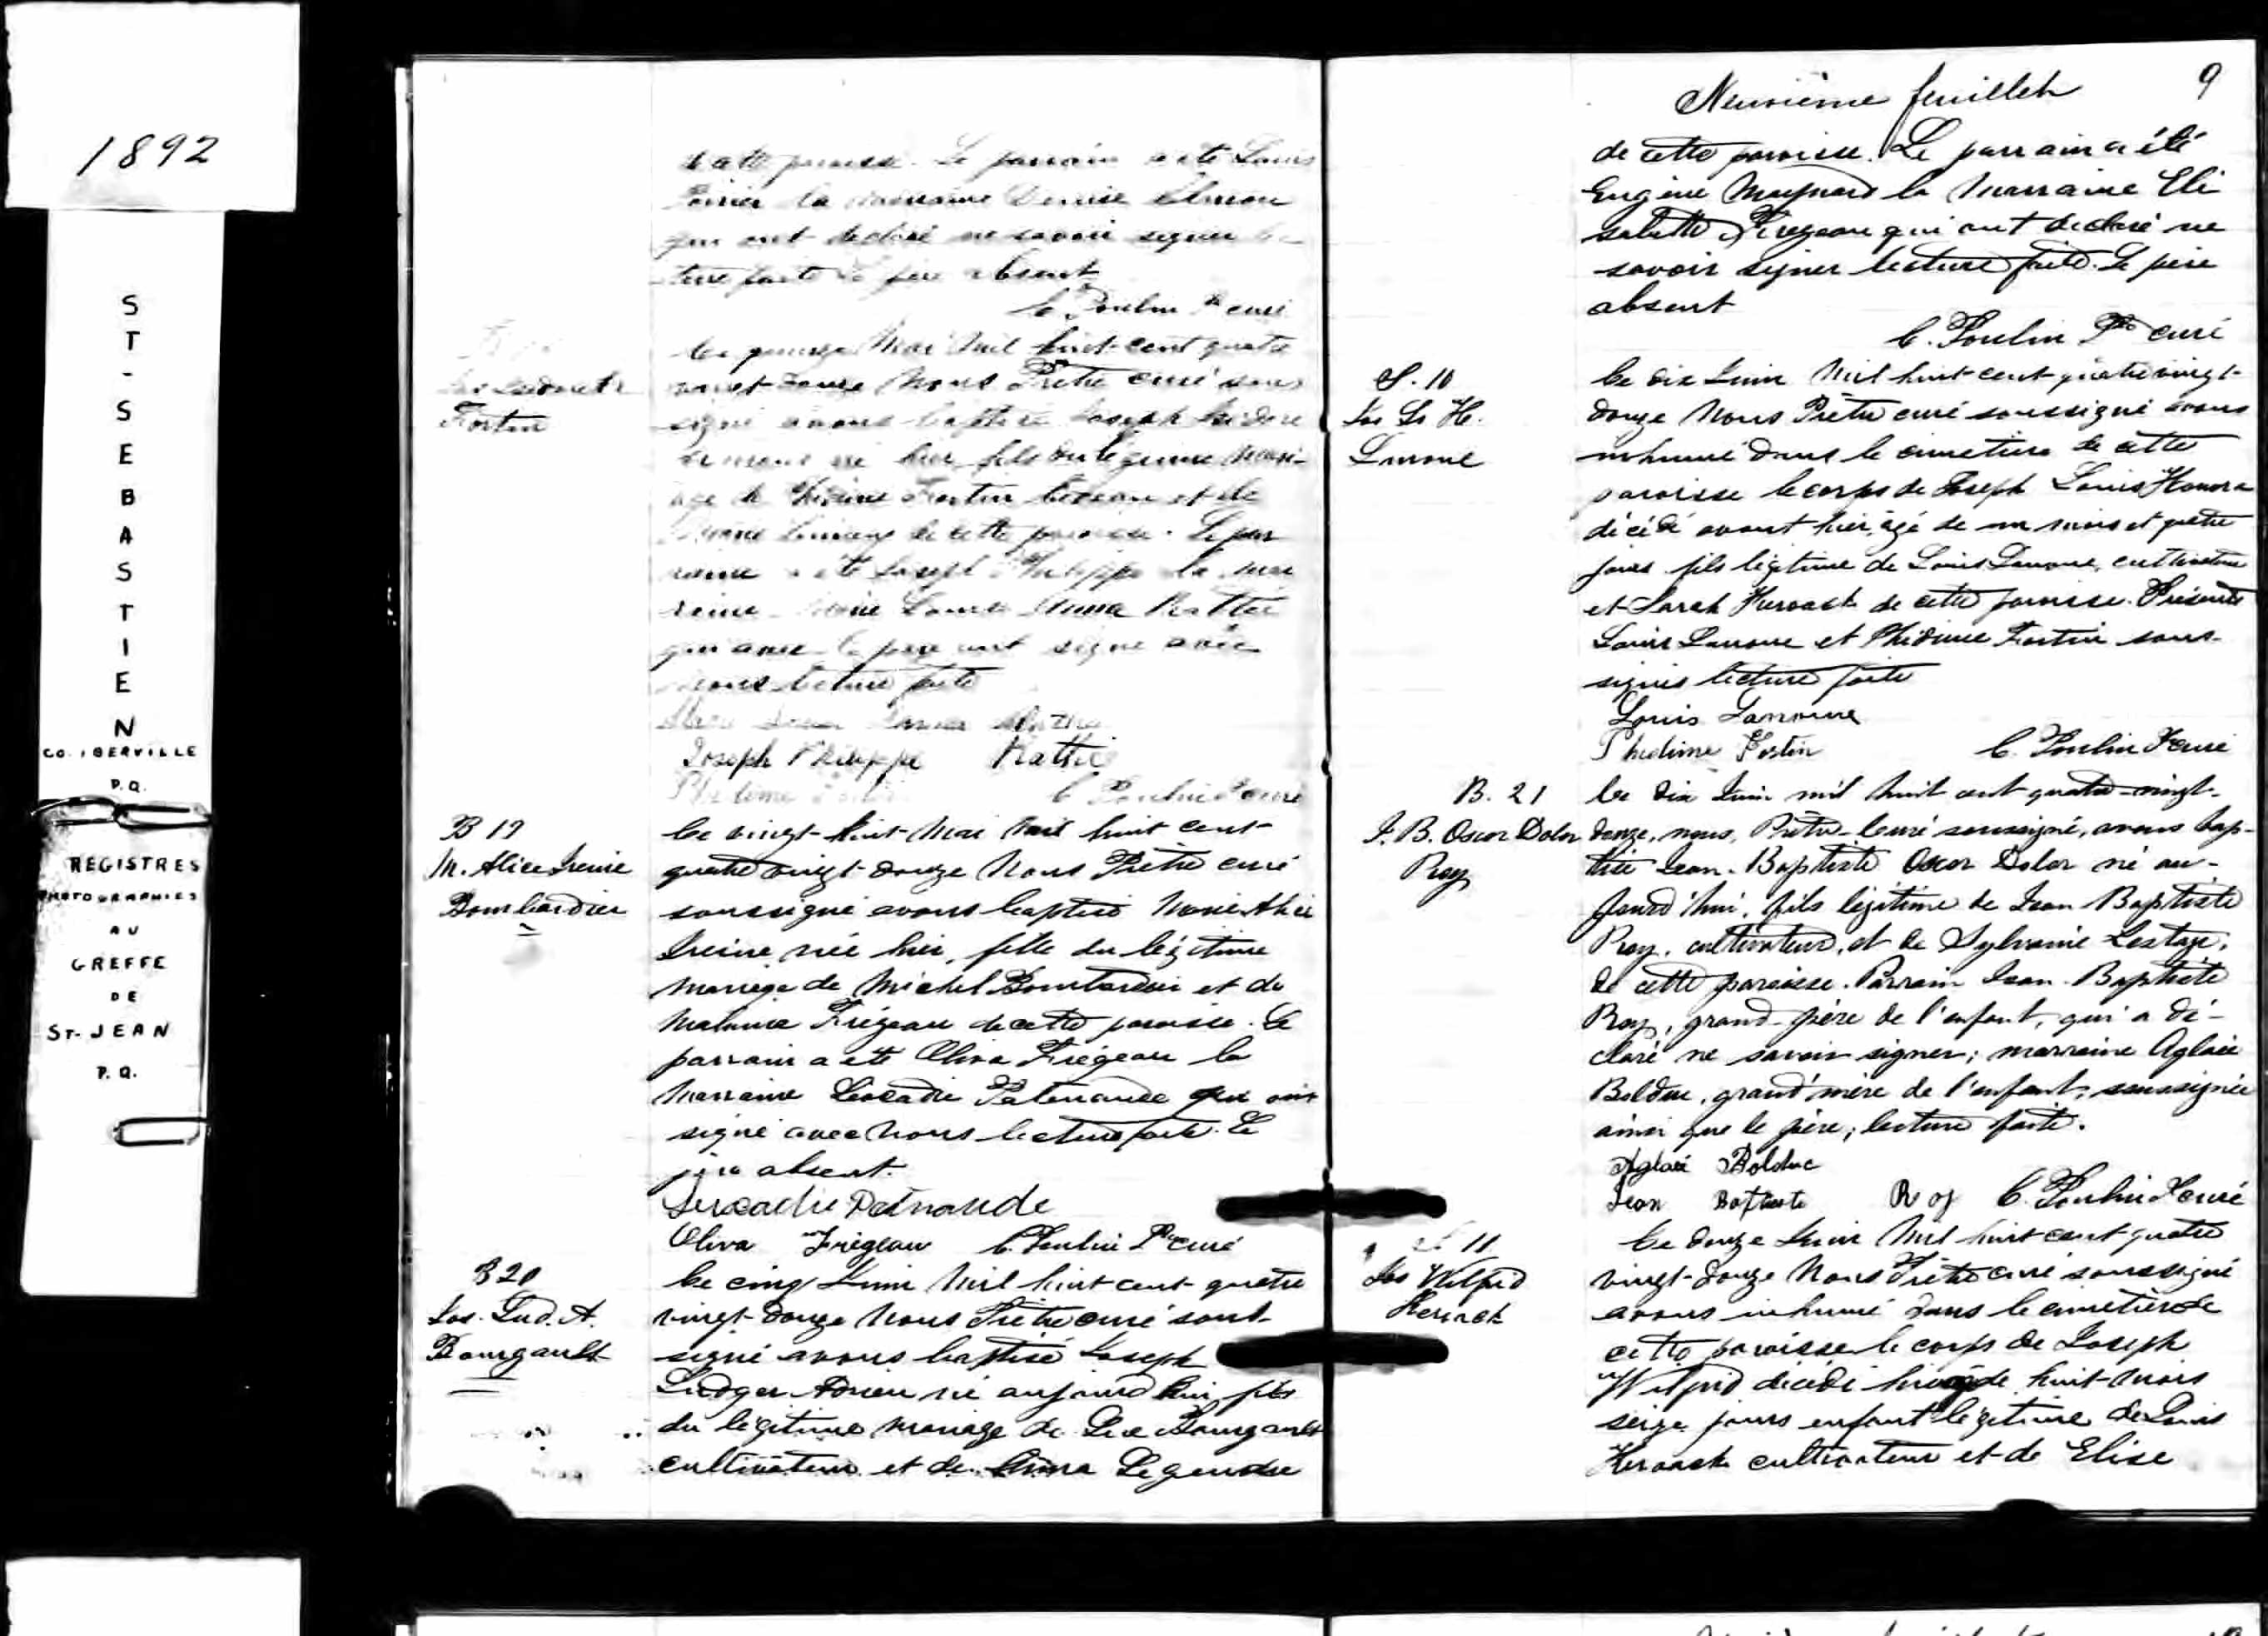 1892
S
T
-
S
E
B
A
S
T
I
E
N
CO. IBERVILLE
P.Q.
REGISTRES
PHOTOGRAPHIES
AU
GREFFE
DE
ST-JEAN
P.Q.
de cette paroisse. Le parrain a été Louis
Poirier la marraine Denise
qui ont déclaré ne savoir signer lec
ture faite le père absent
C. Poulin Ptre curé
Fortin
Le quinze Mai Mil huit cent quatre
vingt-douze Nous Prêtre curé sous
signé avons baptisé Joseph Isidore
né hier fils du légitime mari-
age de Phidime Fortin et de
de cette paroisse. Le par
rain a été Joseph Philippe la mar
raine Marie Louise Anna Rattié
qui avec le père ont signé avec
nous lecture faite
Joseph Philippe Rattié
C. Poulin Ptre curé
B 19
M. Alice Irenie
Bombardier
Le vingt-huit Mai Mil huit cent-
quatre vingt-douze Nous Prêtre curé
soussigné avons baptisé Marie Alice
Irenie, née hier, fille du légitime
mariage de Michel Bombardier et de
Malvina Frégeau de cette paroisse. Le
parrain a été Oliva Frégeau la
marraine Léocadie Patenaude qui ont
signé avec nous lecture faite. Le
père absent.
Leocadie Patnaude
Oliva Frégeau C. Poulin Ptre curé
B 20
Jos. Lud. A.
Bourgault
Le cinq Juin Mil huit cent quatre
vingt-douze Nous Prêtre curé sous-
signé avons baptisé Joseph
Ludger Adrien né aujourd'hui, fils
du légitime mariage de Bourgault
cultivateur et de Anna Legendre
Neuvième feuillet 9
de cette paroisse. Le parrain a été
Eugène Maynard la Marraine Eli
sabette Frégeau qui ont déclaré ne
savoir signer lecture faite. Le père
absent
C. Poulin Ptre curé
S. 10
Jos Ls H.
Lanoue
Le dix Juin Mil huit cent quatre vingt-
douze Nous Prêtre curé soussigné avons
inhumé dans le cimetière de cette
paroisse le corps de Joseph Louis Honora
décédé avant hier, agé de un mois et quatre
jours fils légitime de Louis Lanoue, cultivateur
et Sarah Keroack de cette paroisse. Présents
Louis Lanoue et Phidime Fortin sous-
signés lecture faite
Louis Lanoue
Phidime Fortin C. Poulin Ptre curé
B. 21
J. B. Oscar Dolor
Roy
Le dix Juin mil huit cent quatre-vingt-
douze, nous, Prêtre-Curé soussigné, avons bap-
tisé Jean-Baptiste Oscar Dolor né au-
jourd'hui, fils légitime de Jean Baptiste
Roy, cultivateur, et de Sylvanie Lestage,
de cette paroisse. Parrain Jean-Baptiste
Roy, grand-père de l'enfant, qui a dé-
claré ne savoir signer; marraine Aglaée
Bolduc, grand'mère de l'enfant, soussignée
ainsi que le père; lecture faite.
Aglaé Bolduc
Jean Baptiste Roy C. Poulin Ptre curé
S 11
Jos Wilfrid
Keroack
Le douze Juin Mil huit cent quatre
vingt-douze Nous Prêtre curé soussigné
avons inhumé dans le cimetière de
cette paroisse le corps de Joseph
Wilfrid décédé hier agé de huit mois
seize jours enfant légitime de Louis
Keroack cultivateur et de Elise